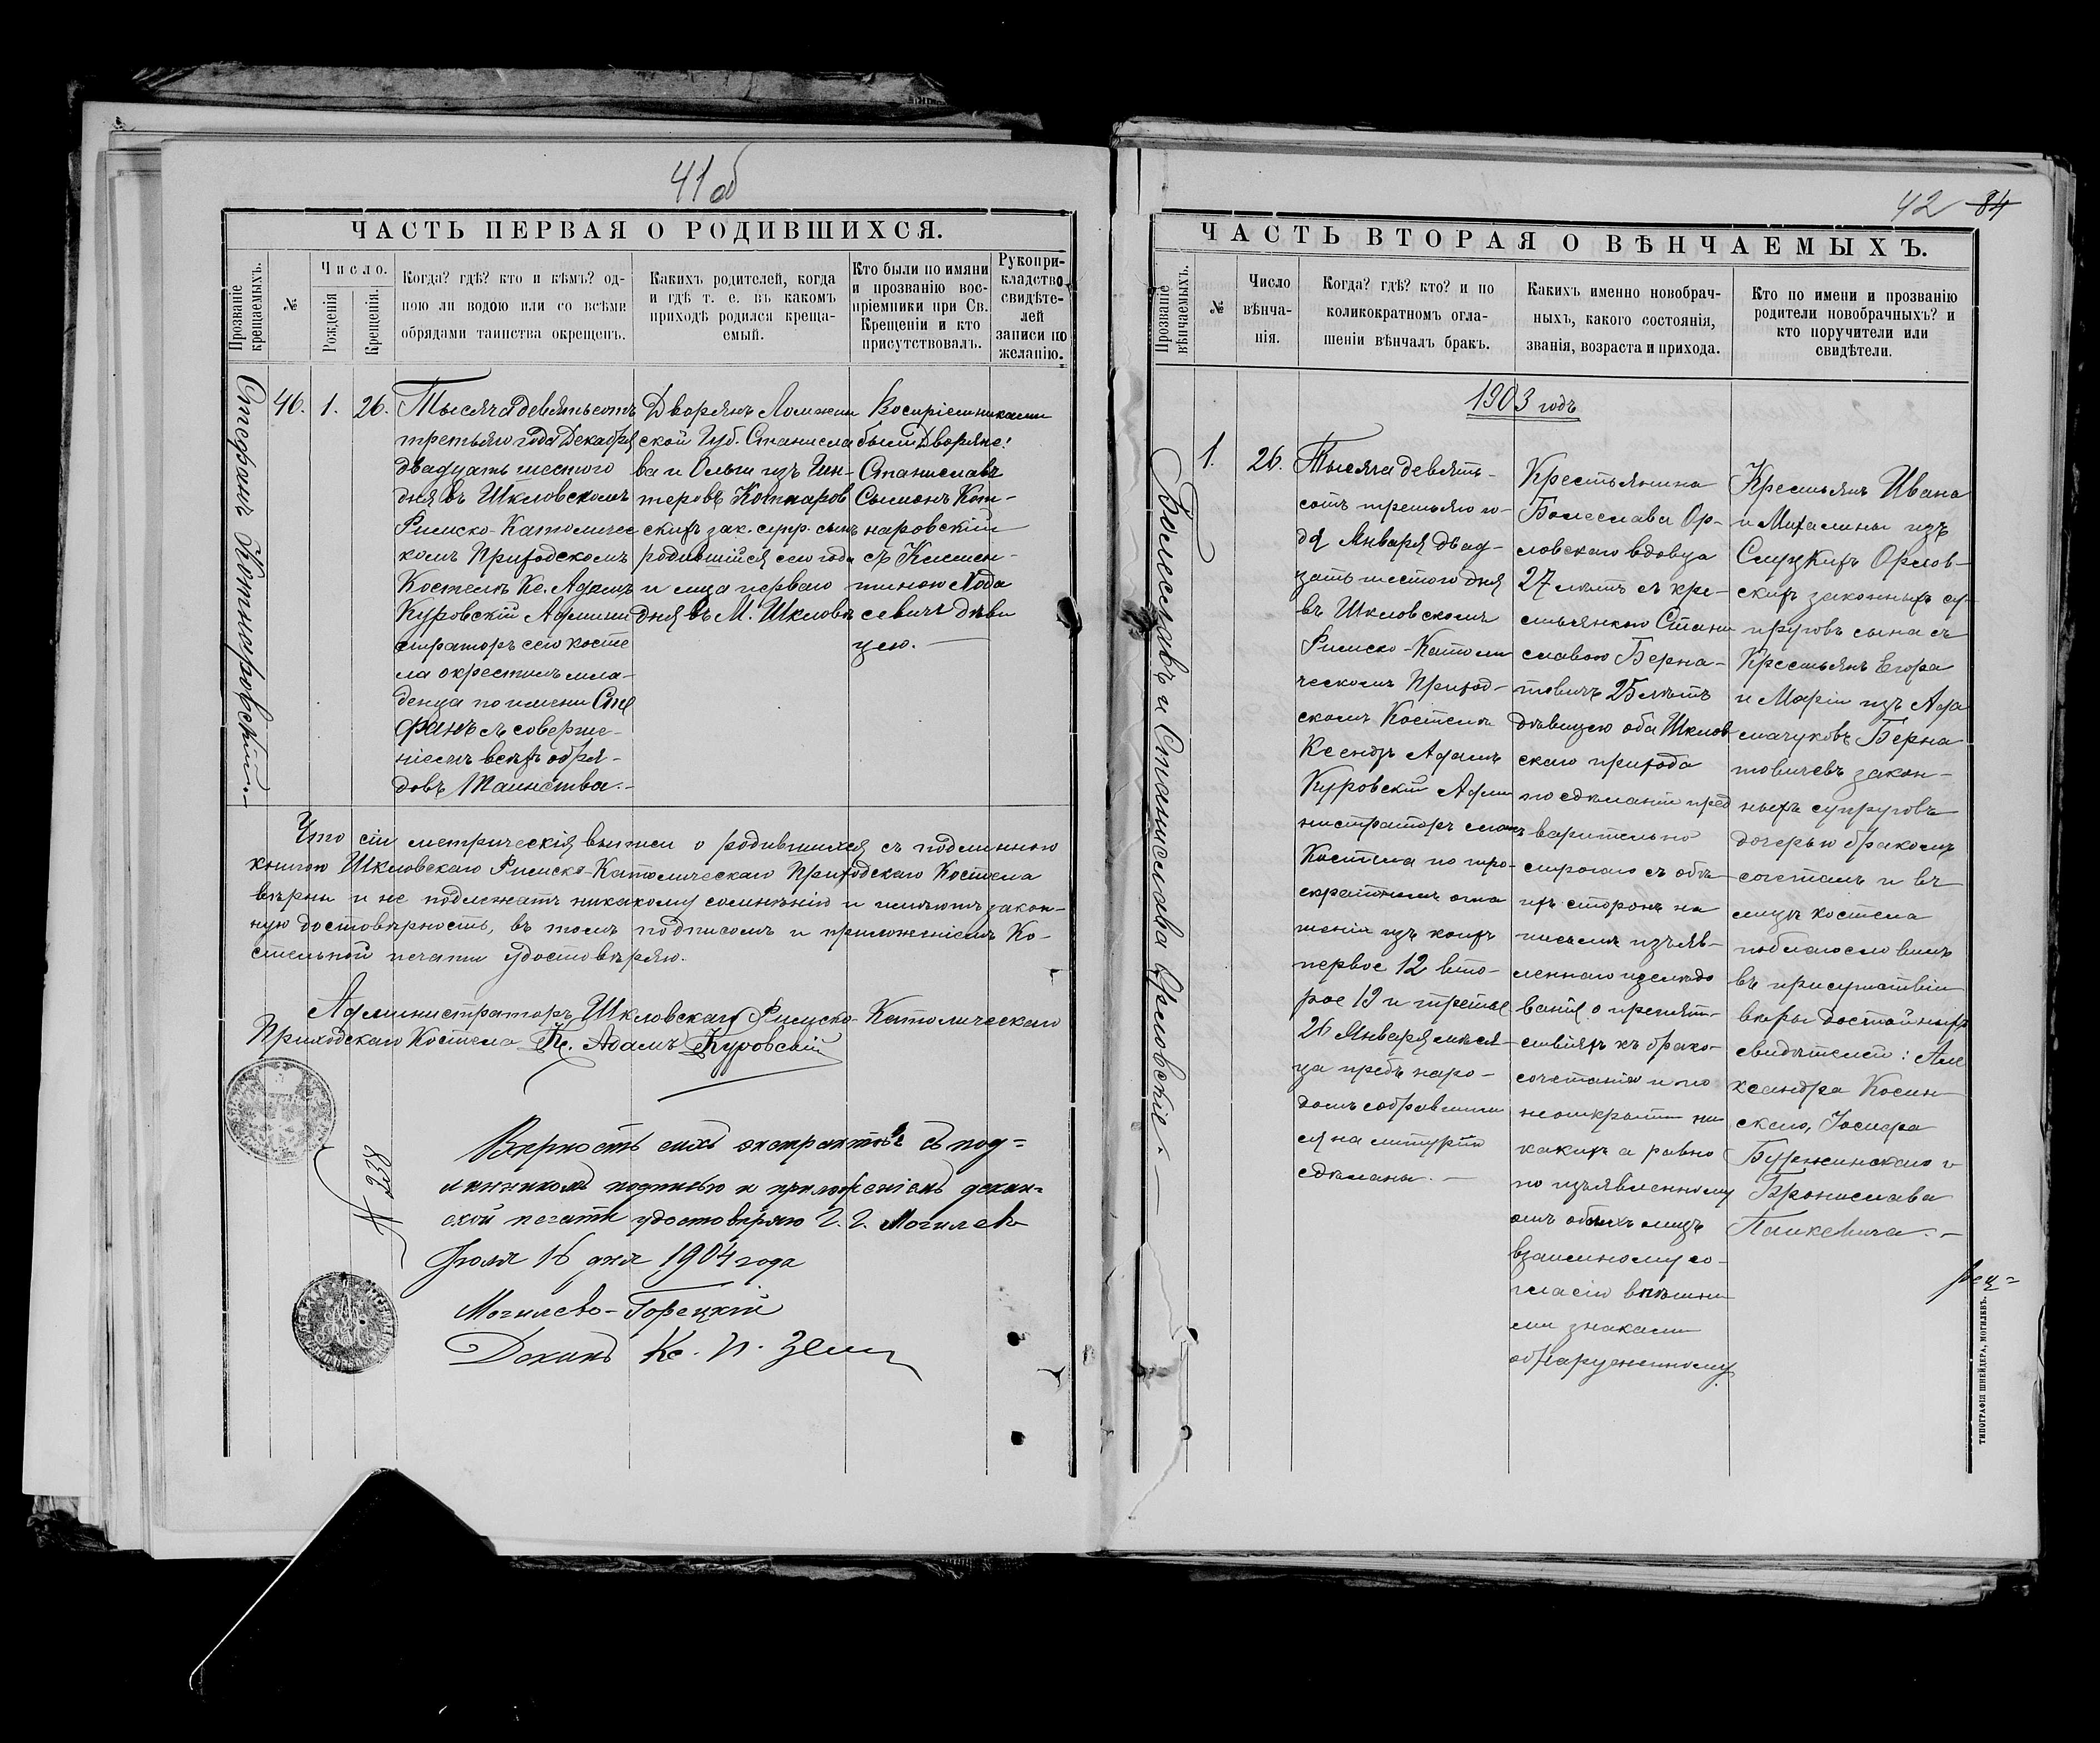 41 об
ЧАСТЬ ПЕРВАЯ О РОДИВШИХСЯ.
Прозваніе крещаемыхъ.
№
Число.
Рожденія
Крещенія.
Когда? гдѣ? кто и кѣмъ? од-
ною ли водою или со всѣми
обрядами таинства окрещенъ.
Какихъ родителей, когда
и гдѣ т. е. въ какомъ
приходѣ родился креща-
емый.
Кто были по имяни
и прозванію вос-
пріемники при Св.
Крещеніи и кто
присутствовалъ.
Рукопри-
кладство
свидѣте-
лей
записи по
желанію.
Стефанъ Котнаровскій.
46.
1.
26.
Тысяча девятьсотъ
третьяго года Декабря
двадцать шестого
дня въ Шкловскомъ
Римско-Католичес
комъ Приходскомъ
Костелѣ Кс. Адамъ
Куровскій Админи
страторъ сего косте
ла окрестилъ мла-
денца по имени Сте
фанъ съ соверше-
ніемъ всѣхъ обря-
довъ Таинства.-
Дворянъ Ломжин
ской Губ. Станисла
ва и Ольги изъ Гин-
теровъ Котнаров
скихъ зак. супр. сынъ
родившійся сего года
и м-ца перваго
дня въ М. Шкловѣ
Воспріемниками
были Дворяне:
Станиславъ
Сымонъ Кот-
наровскій
съ Клемен-
тиною Хода
севичъ дѣви
цею.
Что сіи метрическія выписи о родившихся съ подлинною
книгою Шкловскаго Римско-Католическаго Приходскаго Костела
вѣрны и не подлежатъ никакому сомнѣнію и имѣютъ закон-
ную достовѣрность, въ томъ подписомъ и приложеніемъ Ко-
стельной печати удостовѣряю.
Администраторъ Шкловскаго Римско-Католическаго
Приходскаго Костела Кс. Адамъ Куровскій
N 238
Вѣрность сихъ экстрактовъ съ под=
линникомъ подписью и приложеніемъ декан=
ской печати удостовѣряю Г. Г. Могилевъ
Іюля 16 дня 1904 года
Могилево-Горецкій
Деканъ Кс.
42 84
ЧАСТЬ ВТОРАЯ О ВѢНЧАЕМЫХЪ.
Прозваніе вѣнчаемыхъ.
№
Число
вѣнча-
нія.
Когда? гдѣ? кто? и по
коликократномъ огла-
шеніи вѣнчалъ бракъ.
Какихъ именно новобрач-
ныхъ, какого состоянія,
званія, возраста и прихода.
Кто по имени и прозванію
родители новобрачныхъ? и
кто поручители или
свидѣтели.
1903 годъ
Болеславъ и Станислава Орловскіе.-
1.
26.
Тысяча девять-
сотъ третьяго го-
да Января двад-
цать шестого дня
въ Шкловскомъ
Римско-Католи
ческомъ Приход-
скомъ Костелѣ
Ксендзъ Адамъ
Куровскій Адми
нистраторъ сего
Костела по тро-
екратномъ огла
шеніи изъ коихъ
первое 12 вто-
рое 19 и третье
26 Января мѣся-
ца предъ наро-
домъ собравшим
ся на литургію
сдѣланы.-
Крестьянина
Болеслава Ор-
ловскаго вдовца
27 лѣтъ съ кре-
стьянкою Стани
славою Берна-
товичъ 25 лѣтъ
дѣвицею оба Шклов
скаго прихода
по сдѣланіи пред
варительно
строгаго съ обѣ
ихъ сторонъ на
письмѣ изъяв-
леннаго изслѣдо
ванія о препят-
ствіяхъ къ брако-
сочетанію и по
неоткрытіи ни
какихъ а равно
по изъявленному
отъ обѣихъ лицъ
взаимному со-
гласію внѣшни
ми знаками
обнаруженному
Крестьянъ Ивана
и Михалины изъ
Слуцкихъ Орлов-
скихъ законныхъ су-
пруговъ сына съ
Крестьянъ Егора
и Маріи изъ Ада
мачуковъ Берна
товичевъ закон-
ныхъ супруговъ
дочерью бракомъ
сочеталъ и въ
лицѣ костела
поблагословилъ
въ присутствіи
вѣры достойныхъ
свидѣтелей: Але
ксандра Косин-
скаго, Іосифа
Буржинскаго и
Бронислава
Панкевича.-
ТИПОГРАФІЯ ШНЕЙДЕРА, МОГИЛЕВЪ.